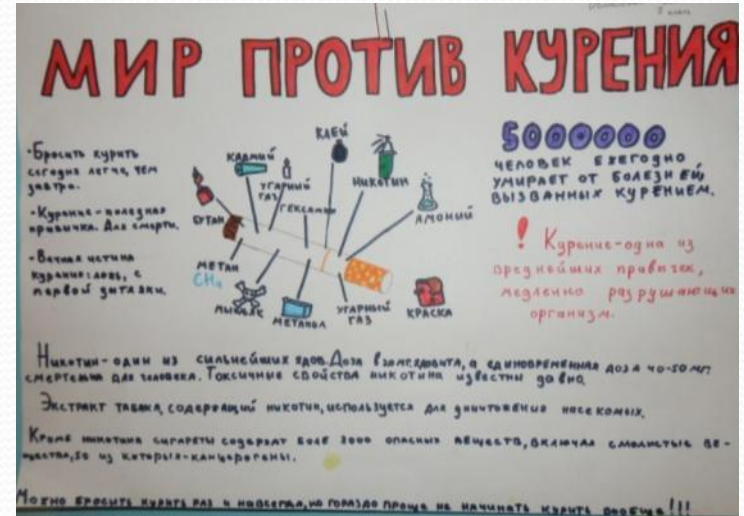 МИР ПРОТИВ КУРЕНИЯ
•Бросить курить
сегодня легче, чем
завтра.
•Курение-полезная
привычка. Для смерти.
•Вечная истина
с
первой затяжки.
КАДМИЙ
УГАРНЫЙ
ГАЗ
КЛЕЙ
НИКОТИН
АМОНИЙ
БУТАН
МЕТАН
CH₄
МЫШЬЯК
МЕТАНОЛ
УГАРНЫЙ
ГАЗ
КРАСКА
5000000
ЧЕЛОВЕК ЕЖЕГОДНО
УМИРАЕТ ОТ БОЛЕЗНЕЙ,
ВЫЗВАННЫХ КУРЕНИЕМ.
! Курение-одна из
вреднейших привычек,
медленно разрушающих
организм.
Никотин-один из сильнейших ядов. Доза ядовита, а единовременная доза 40-50мг
смертельна для человека. Токсичные свойства никотина известны давно.
Экстракт табака, содержащий никотин, используется для уничтожения насекомых.
Кроме никотина сигареты содержат боле 3000 опасных веществ, включая смолистые ве-
щества, 50 из которых-канцерогены.
Можно бросить курить раз и навсегда, но гораздо проще не начинать курить вообще!!!